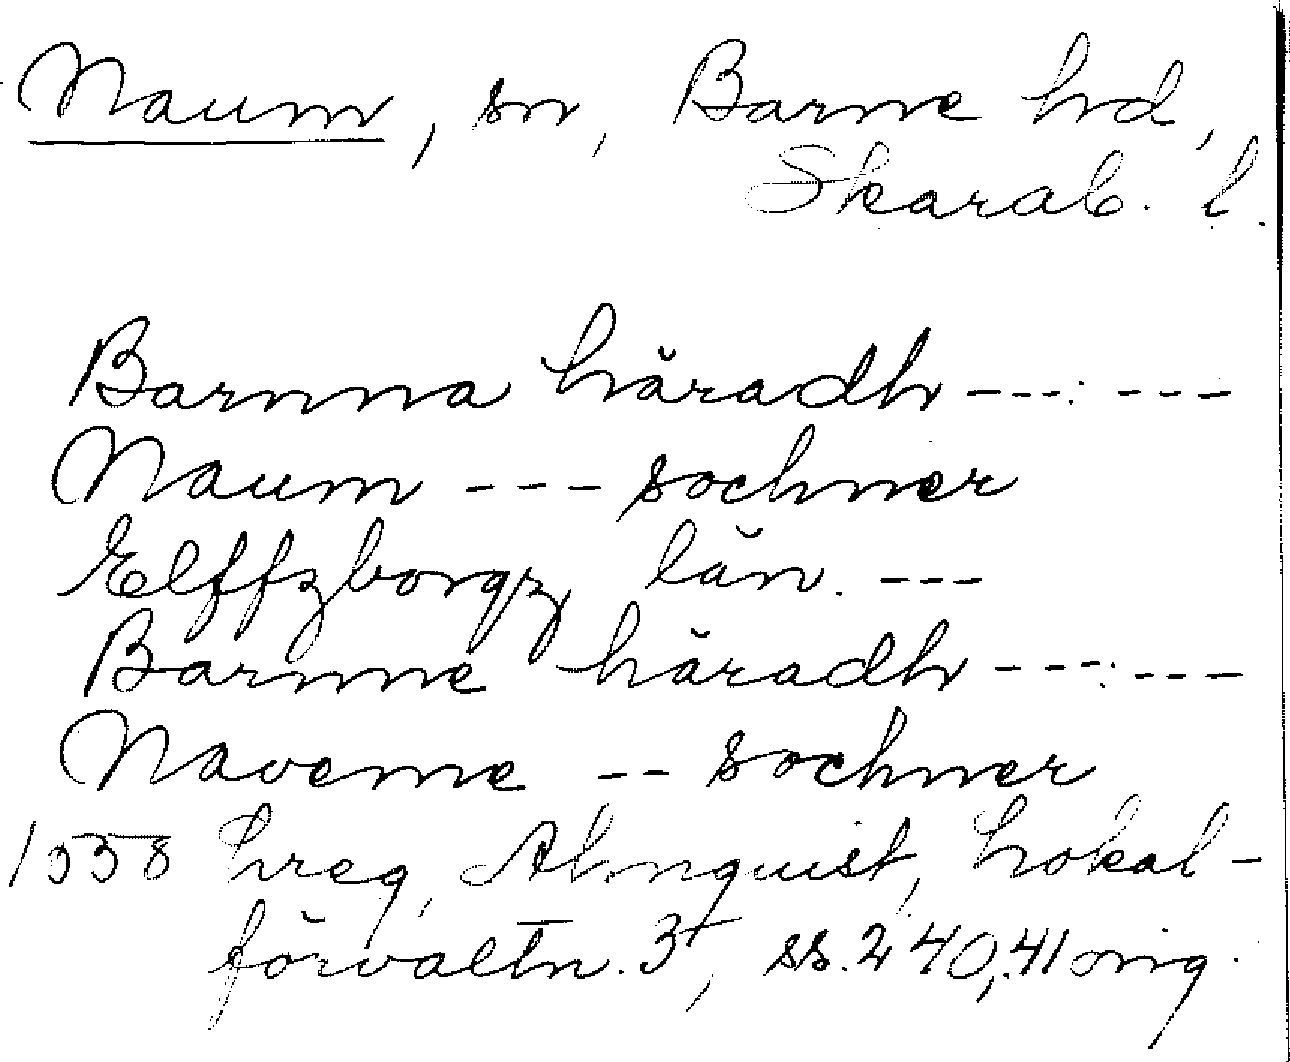 Naum, sn, Barne hd,
Skarab. l.
Barnna häradh ---:---
Naum --- sochner
Elffzborgz län. ---
Barnne häradh ---:---
Naveme -- sochner
1558 hreg, Almquist, Lokal-
förvaltn. 3, ss. 240, 41 orig.